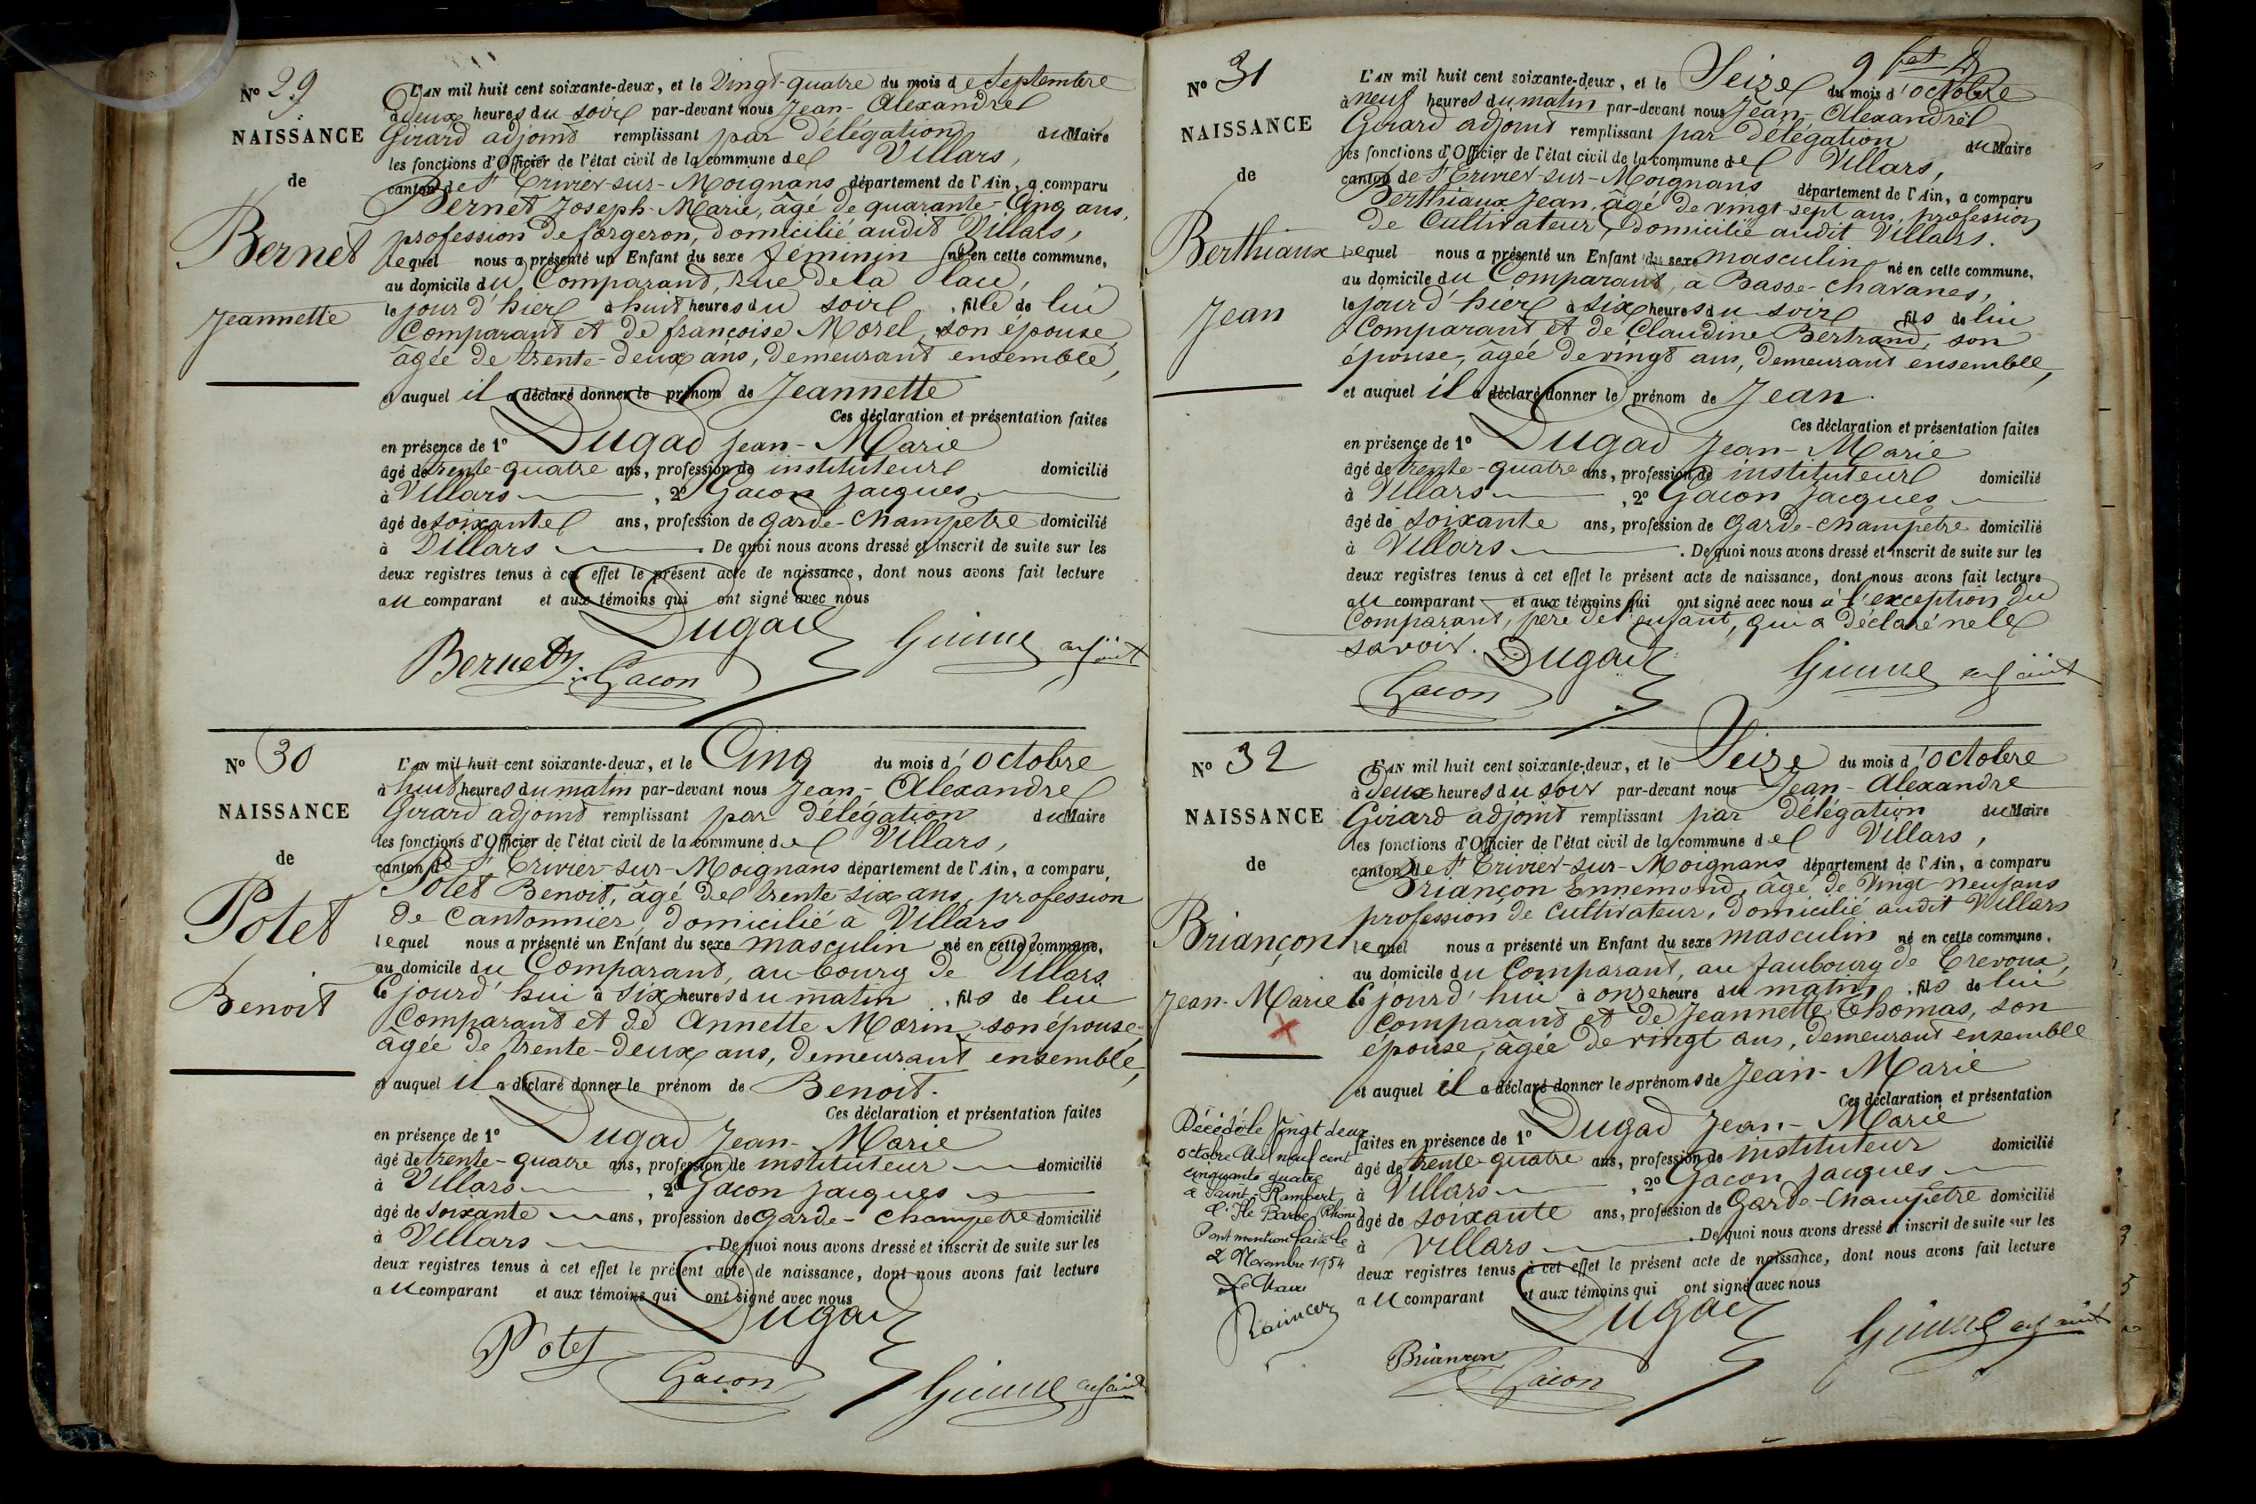 N° 29
NAISSANCE
de
Bernet
Jeannette
L'AN mil huit cent soixante-deux, et le Vingt-quatre du mois de Septembre
à deux heures du soir par-devant nous Jean-Alexandre
Girard adjoint remplissant par délégation du Maire
les fonctions d'Officier de l'état civil de la commune de Villars,
canton de St Trivier-sur-Moignans département de l'Ain, a comparu
Bernet Joseph-Marie, âgé de quarante-Cinq ans,
profession de forgeron, domicilié audit Villars,
lequel nous a présenté un Enfant du sexe féminin né en cette commune,
au domicile du Comparant, rue de la
le jour d'hier à huit heures du soir, fille de lui
Comparant et de françoise Morel, son épouse
âgée de trente-deux ans, demeurant ensemble,
et auquel il a déclaré donner le prénom de Jeannette
Ces déclaration et présentation faites
en présence de 1° Dugad Jean-Marie
âgé de trente-quatre ans, profession de instituteur domicilié
à Villars, 2° Gacon Jacques
âgé de soixante ans, profession de garde-champêtre domicilié
à Villars. De quoi nous avons dressé et inscrit de suite sur les
deux registres tenus à cet effet le présent acte de naissance, dont nous avons fait lecture
au comparant et aux témoins qui ont signé avec nous
Dugad
Bernet Gacon Girard adjoint
N° 30
NAISSANCE
de
Potet
Benoit
L'AN mil huit cent soixante-deux, et le Cinq du mois d'octobre
à huit heures du matin par-devant nous Jean-Alexandre
Girard adjoint remplissant par délégation du Maire
les fonctions d'Officier de l'état civil de la commune de Villars,
canton de St Trivier-sur-Moignans département de l'Ain, a comparu,
Potet Benoit, âgé de trente-six ans, profession
de Cantonnier, domicilié à Villars
lequel nous a présenté un Enfant du sexe masculin né en cette commune,
au domicile du Comparant, au bourg de Villars
le jourd'hui à six heures du matin, fils de lui
Comparant et de Annette Morin, son épouse,
âgée de trente-deux ans, demeurant ensemble,
et auquel il a déclaré donner le prénom de Benoit.
Ces déclaration et présentation faites
en présence de 1° Dugad Jean-Marie
âgé de trente-quatre ans, profession de instituteur domicilié
à Villars, 2° Gacon Jacques
âgé de soixante ans, profession de garde-champêtre domicilié
à Villars. De quoi nous avons dressé et inscrit de suite sur les
deux registres tenus à cet effet le présent acte de naissance, dont nous avons fait lecture
au comparant et aux témoins qui ont signé avec nous
Dugad
Potet
Gacon Girard adjoint
N° 31
NAISSANCE
de
Berthiaux
Jean
L'AN mil huit cent soixante-deux, et le Seize du mois d'octobre
à neuf heures du matin par-devant nous Jean-Alexandre
Girard adjoint remplissant par délégation du Maire
les fonctions d'Officier de l'état civil de la commune de Villars,
canton de St Trivier-sur-Moignans département de l'Ain, a comparu
Berthiaux Jean, âgé de vingt-sept ans, profession
de Cultivateur, domicilié audit Villars.
lequel nous a présenté un Enfant du sexe masculin né en cette commune,
au domicile du Comparant, à Basse-chavanes,
le jour d'hier à six heures du soir fils de lui
Comparant et de Claudine Bertrand, son
épouse, âgée de vingt ans, demeurant ensemble,
et auquel il a déclaré donner le prénom de Jean.
Ces déclaration et présentation faites
en présence de 1° Dugad Jean-Marie
âgé de trente-quatre ans, profession de instituteur domicilié
à Villars, 2° Gacon Jacques
âgé de soixante ans, profession de Garde-champêtre domicilié
à Villars. De quoi nous avons dressé et inscrit de suite sur les
deux registres tenus à cet effet le présent acte de naissance, dont nous avons fait lecture
au comparant et aux témoins qui ont signé avec nous à l'exception du
Comparant, père de l'enfant, qui a déclaré ne le
savoir. Dugad
Gacon Girard adjoint
N° 32
NAISSANCE
de
Briançon
Jean-Marie
Décédé le vingt deux
octobre mil neuf cent
cinquante quatre
à Saint-Rambert
l'Ile Barbe (Rhône)
Dont mention faite le
2 Novembre 1954
Le Maire
L'AN mil huit cent soixante-deux, et le Seize du mois d'octobre
à Deux heures du soir par-devant nous Jean-Alexandre
Girard adjoint remplissant par délégation du Maire
les fonctions d'Officier de l'état civil de la commune de Villars,
canton de St Trivier-sur-Moignans département de l'Ain, a comparu
Briançon Ennemond, âgé de Vingt neuf ans
profession de cultivateur, domicilié audit Villars
lequel nous a présenté un Enfant du sexe masculin né en cette commune,
au domicile du Comparant, au faubourg de Trevoux,
le jourd'hui à onze heure du matin, fils de lui
Comparant et de Jeannette Thomas, son
épouse, âgée de vingt ans, demeurant ensemble
et auquel il a déclaré donner les prénoms de Jean-Marie
Ces déclaration et présentation
faites en présence de 1° Dugad Jean-Marie
âgé de trente-quatre ans, profession de instituteur domicilié
à Villars, 2° Gacon Jacques
âgé de soixante ans, profession de Garde-champêtre domicilié
à Villars. De quoi nous avons dressé et inscrit de suite sur les
deux registres tenus à cet effet le présent acte de naissance, dont nous avons fait lecture
au comparant et aux témoins qui ont signé avec nous
Dugad
Briançon Gacon Girard adjoint